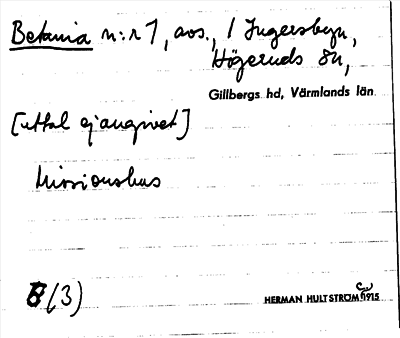 Betania n:r 1, avs., i Ingersbyn,
Högeruds sn,
Gillbergs hd, Värmlands län
[uttal ej angivet]
Missionshus
6 (3)
HERMAN HULTSTRÖM 1915